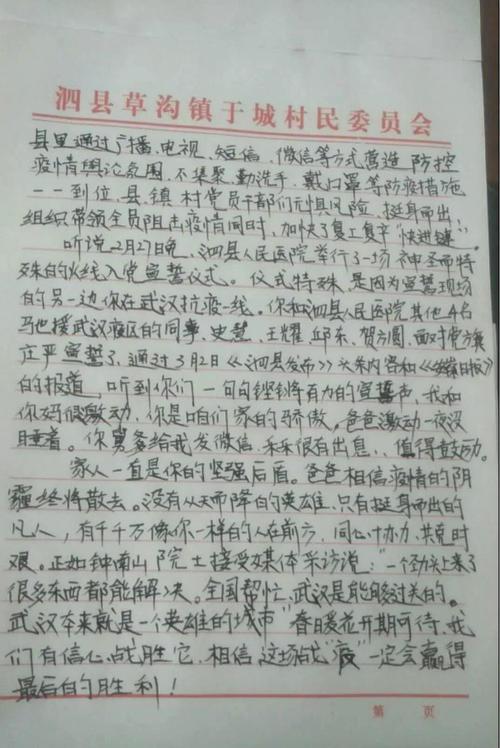 泗县草沟镇于城村民委员会
县里通过广播、电视、短信、微信等方式营造防控
疫情舆论氛围,不集聚、勤洗手、戴口罩等防疫措施
一一到位,县、镇、村党员干部们无惧风险,挺身而出,
组织带领全员阻击疫情同时,加快了复工复产“快进键”。
听说2月27日晚,泗县人民医院举行了一场神圣而特
殊的火线入党宣誓仪式。仪式特殊,是因为宣誓现场
的另一边你在武汉抗疫一线。你和泗县人民医院其他4名
驰援武汉疫区的同事,史慧、王耀、邱东、贺方圆,面对党旗
庄严宣誓了,通过3月2日《泗县发布》头条内容和《安徽日报》
的报道,听到你们一句句铿锵有力的宣誓声,我和
你妈很激动,你是咱们家的骄傲。爸爸激动一夜没
睡着。你舅爹给我发微信,禾禾很有出息、、值得鼓动。
家人一直是你的坚强后盾。爸爸相信疫情的阴
霾终将散去。没有从天而降的英雄,只有挺身而出的
凡人,有千千万像你一样的人在前方,同心协力,共克时
艰。正如钟南山院士接受媒体采访说:“一个劲头上来了
很多东西都能解决。全国帮忙,武汉是能够过关的。
武汉本来就是一个英雄的城市”春暖花开期可待,我
们有信心战胜它,相信这场战“疫”一定会赢得
最后的胜利!
第 页